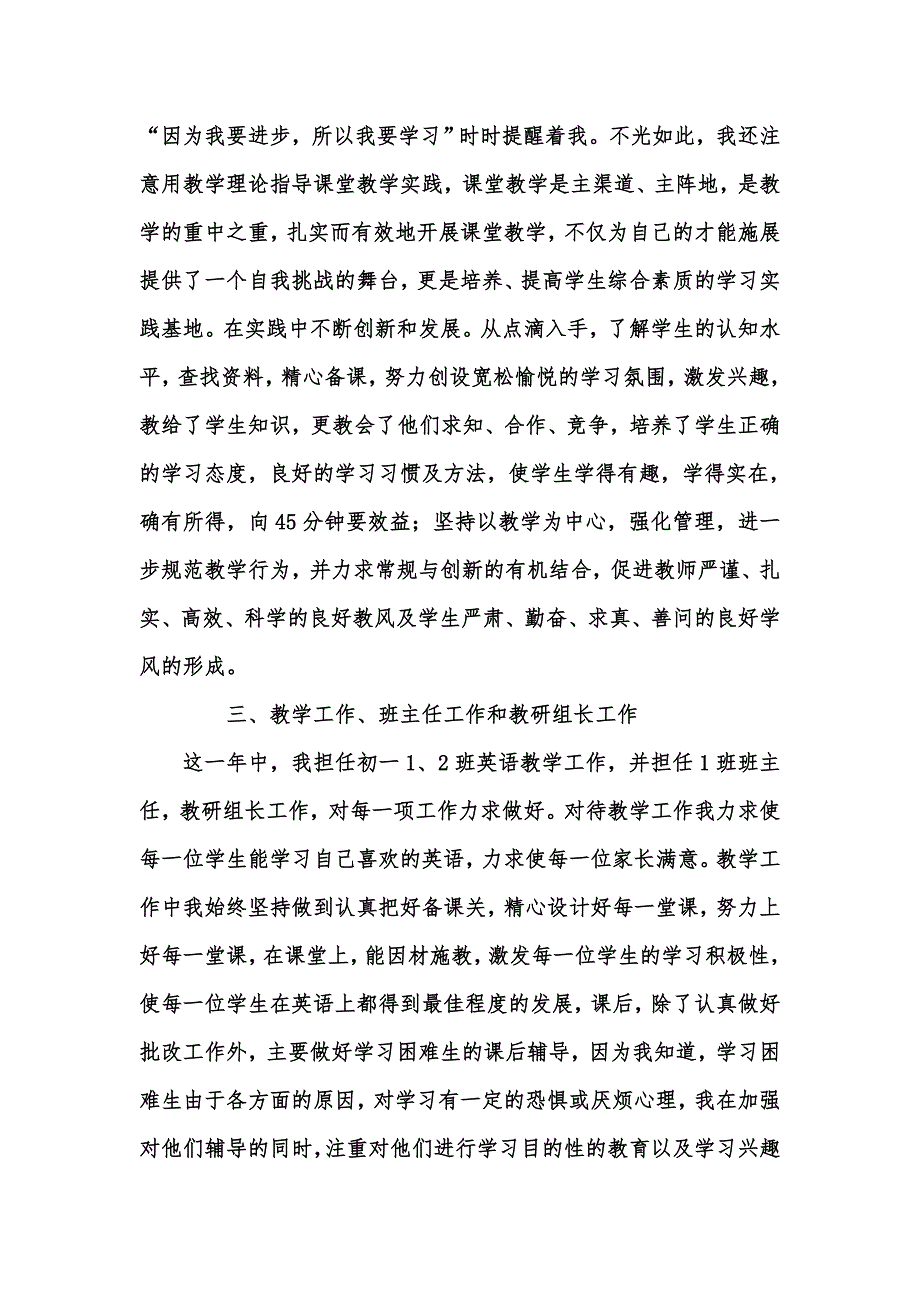 “因为我要进步，所以我要学习”时时提醒着我。不光如此，我还注
意用教学理论指导课堂教学实践，课堂教学是主渠道、主阵地，是教
学的重中之重，扎实而有效地开展课堂教学，不仅为自己的才能施展
提供了一个自我挑战的舞台，更是培养、提高学生综合素质的学习实
践基地。在实践中不断创新和发展。从点滴入手，了解学生的认知水
平，查找资料，精心备课，努力创设宽松愉悦的学习氛围，激发兴趣，
教给了学生知识，更教会了他们求知、合作、竞争，培养了学生正确
的学习态度，良好的学习习惯及方法，使学生学得有趣，学得实在，
确有所得，向45分钟要效益；坚持以教学为中心，强化管理，进一
步规范教学行为，并力求常规与创新的有机结合，促进教师严谨、扎
实、高效、科学的良好教风及学生严肃、勤奋、求真、善问的良好学
风的形成。
三、教学工作、班主任工作和教研组长工作
这一年中，我担任初一1、2班英语教学工作，并担任1班班主
任，教研组长工作，对每一项工作力求做好。对待教学工作我力求使
每一位学生能学习自己喜欢的英语，力求使每一位家长满意。教学工
作中我始终坚持做到认真把好备课关，精心设计好每一堂课，努力上
好每一堂课，在课堂上，能因材施教，激发每一位学生的学习积极性，
使每一位学生在英语上都得到最佳程度的发展，课后，除了认真做好
批改工作外，主要做好学习困难生的课后辅导，因为我知道，学习困
难生由于各方面的原因，对学习有一定的恐惧或厌烦心理，我在加强
对他们辅导的同时，注重对他们进行学习目的性的教育以及学习兴趣